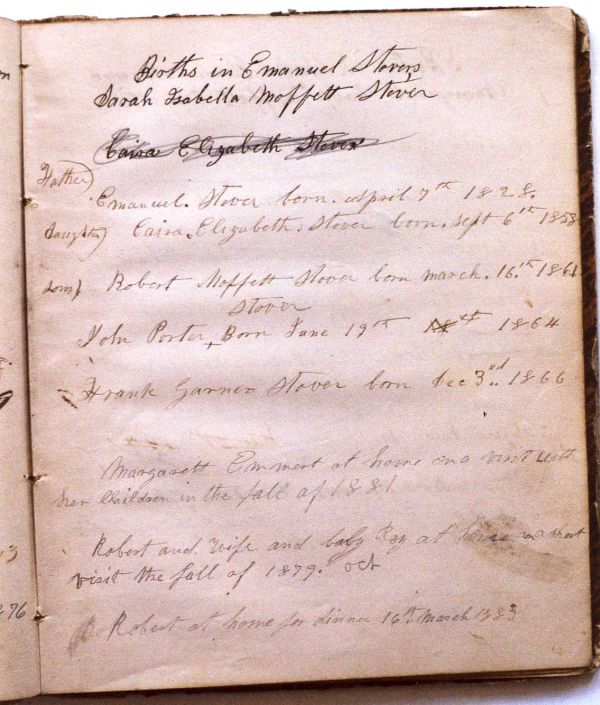 Births in Emanuel Stovers
Sarah Isabella Moffett Stover
Caira Elizabeth Stover
Father)
Emanuel. Stover born. april 7th 1828.
daughter) Caira. Elizabeth. Stover born. Sept 6th 1858
sons) Robert Moffett Stover born march. 16.th 1861
Stover
John Porter + Born June 19th 1864
Frank Garner Stover born Dec 3ed 1866
Margarett Emmert at home on a visit with
her Children in the fall of 1881
Robert and. Wife and baby Roy at home on a short
visit the fall of 1879. oct
Robert at home for dinner 16th March 1883
13
876